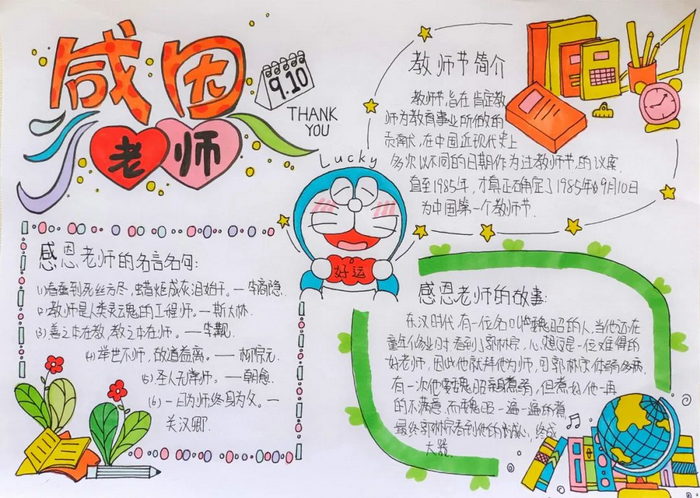 感恩
老师
9.10
THANK
YOU
Lucky
好运
教师节简介
教师节,旨在肯定教
师为教育事业所做的
贡献,在中国近现代史上
多次以不同的日期作为过教师节.的议案
直至1985年,才真正确定了1985年的9月10日
为中国第一个教师节.
感恩老师的名言名句:
(1)春蚕到死丝方尽,蜡炬成灰泪始干.——李商隐.
(2)教师是人类灵魂的工程师.——斯大林.
(3)善之本在教,教之本在师.——李觏.
(4)举世不师,故道益离.——柳宗元.
(5)圣人无常师.——韩愈.
(6)一日为师终身为父.——
关汉卿.
感恩老师的故事:
东汉时代,有一位名叫魏昭的人,当他还在
童年
时看到
郭林宗,心想
是一位难得的
好老师,因此他就拜他为师,可郭林宗体弱多病,
有一次他
魏昭
煮粥,但
他一再
的不满意,而魏昭一遍一遍
煮
最终郭林宗看到他的
心,终成
大器.